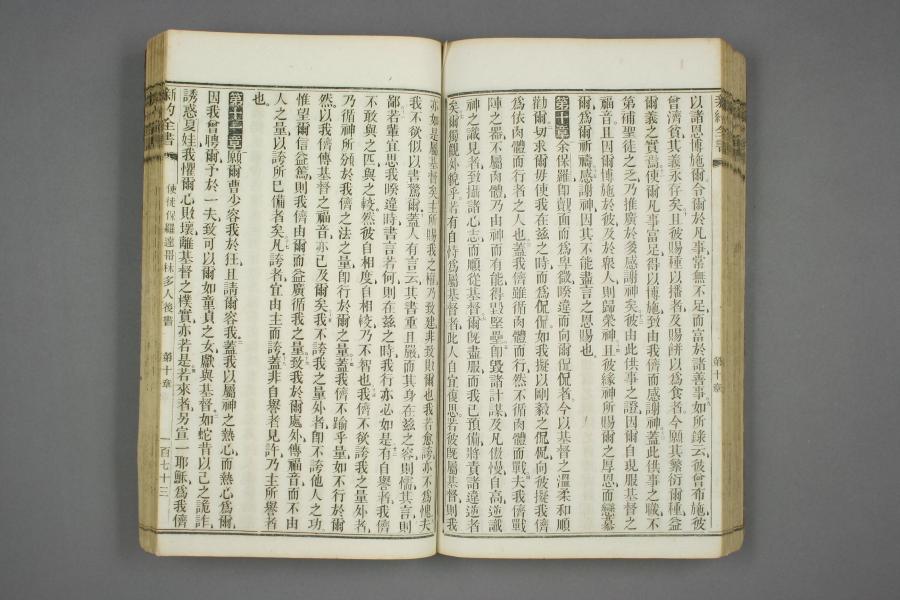 以諸恩博施爾令爾於凡事常無不足而富於諸善事如所錄云彼曾布施彼
曾濟貧其義永存矣且彼賜種以播者及賜餅以為食者今願其繁衍爾種益
爾義之實焉使爾凡事富足得以博施致由我儕而感謝神蓋此供事之職不
第補聖徒之乏乃推廣於多感謝神矣彼由此供事之證因爾自現服基督之
福音且因爾博施於彼及於眾人則歸榮神且彼緣神所賜爾之厚恩而戀慕
爾為爾祈禱感謝神因其不能盡言之恩賜也
第十章余保羅卽覿面而為卑微暌違而向爾侃侃者今以基督之溫柔和順
勸爾切求爾毋使我在茲之時而為侃侃如我擬以剛毅之侃侃向彼擬我儕
為依肉體而行者之人也蓋我儕雖循肉體而行然不循肉體而戰夫我儕戰
陣之器不屬肉體乃由神而有能得毀堅壘卽毀諸計謀及凡傲慢自高逆識
神之識見者致攝諸心志而順從基督爾旣盡服而我已預備將責諸違逆者
矣爾獨觀外貌乎若有自恃為屬基督者此人自宜復思若彼旣屬基督則我
亦如是屬基督矣主所賜我之權乃致建非致敗爾也我若愈誇亦不為愧夫
我不欲似以書驚爾蓋人有言云其書重且嚴而其身在茲之容則懦其言則
鄙若輩宜思我暌違時書言若何則在茲之時我行亦必如是有自譽者我儕
不敢與之匹與之較然彼自相度自相較乃不智也我儕不欲誇我之量外者
乃循神所頒於我儕之法之量卽行於爾之量蓋我儕不踰乎量如不行於爾
然以我儕傳基督之福音亦已及爾矣我不誇我之量外者卽不誇他人之功
惟望爾信益篤則我儕由爾而益廣循我之量致我於爾處外傳福音而不由
人之量以誇所已備者矣凡誇者宜由主而誇蓋非自譽者見許乃主所譽者
也
第十一章願爾曹少容我於狂且請爾容我蓋我以屬神之熱心而熱心為爾
因我曾聘爾予於一夫致可以爾如童貞之女獻與基督如蛇昔以己之詭詐
誘惑夏娃我懼爾心敗壞離基督之樸實亦若是若來者另宣一耶穌為我儕
新約全書
使徒保羅達哥林多人後書
第十章
一百七十三